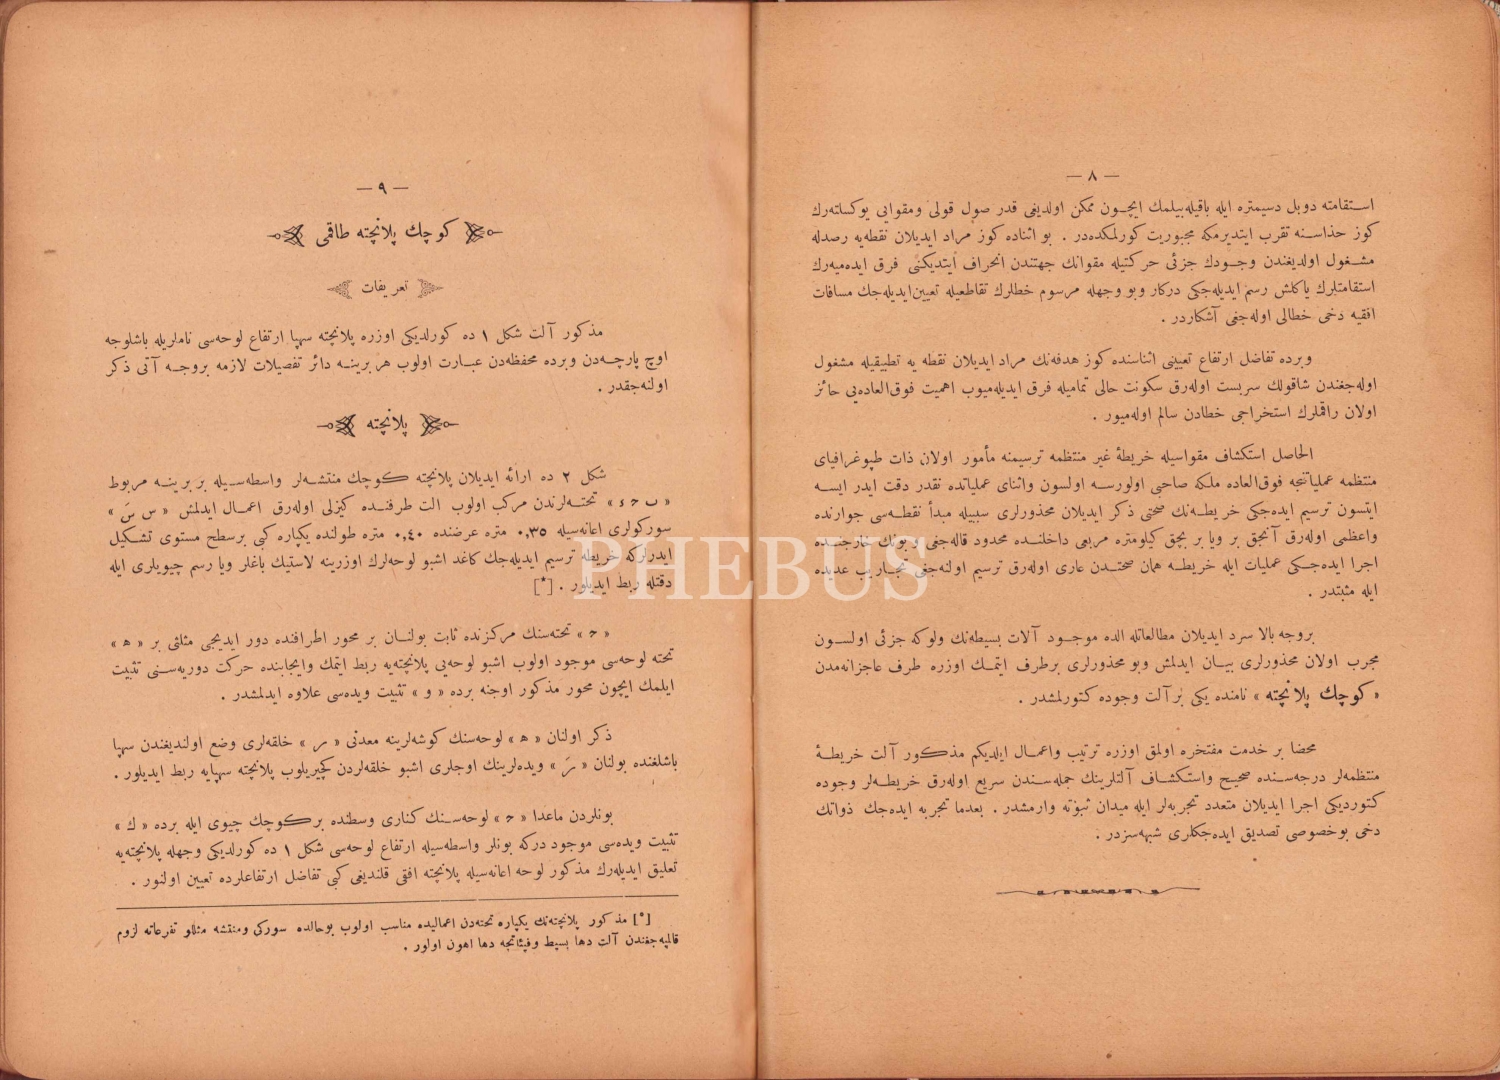 — ٨ —
استقامته دوبل دسیمتره ایله باقیله‌بیلمك ایچون ممكن اولدیغی قدر صول قولی ومقوایی یوكسلته‌رك
كوز حذاسنه تقرب ایتدیرمكه مجبوریت كورلمكده‌در . بو اثناده كوز مراد ایدیلان نقطه‌یه رصدله
مشغول اولدیغندن وجودك جزئی حركتیله مقوانك جهتندن انحراف ایتدیكنی فرق ایده‌میه‌رك
استقامتلرك یاكلش رسم ایدیله‌جكی دركار وبو وجهله مرسوم خطلرك تقاطعیله تعیین ایدیله‌جك مسافات
افقیه دخی خطالی اوله‌جغی آشكاردر .
وبرده تفاضل ارتفاع تعیینی اثناسنده كوز هدفه‌نك مراد ایدیلان نقطه یه تطبیقیله مشغول
اوله‌جغندن شاقولك سربست اوله‌رق سكونت حالی تمامیله فرق ایدیله‌میوب اهمیت فوق‌العاده‌یی حائز
اولان راقملرك استخراجی خطادن سالم اوله‌میور .
الحاصل استكشاف مقواسیله خریطهٔ غیر منتظمه ترسیمنه مأمور اولان ذات طپوغرافیای
منتظمه عملیاتنجه فوق‌العاده ملكه صاحبی اولورسه اولسون واثنای عملیاتده نقدر دقت ایدر ایسه
ایتسون ترسیم ایده‌جكی خریطه‌نك صحتی ذكر ایدیلان محذورلری سببیله مبدأ نقطه‌سی جوارنده
واعظمی اوله‌رق آنجق بر ویا بر بچق كیلومتره مربعی داخلنده محدود قاله‌جغی وبونك خارجنده
اجرا ایده‌جكی عملیات ایله خریطه همان صحتدن عاری اوله‌رق ترسیم اولنه‌جغی تجاریب عدیده
ایله مثبتدر .
بروجه بالا سرد ایدیلان مطالعاتله الده موجود آلات بسیطه‌نك ولوكه جزئی اولسون
مجرب اولان محذورلری بیان ایدلمش وبو محذورلری برطرف ایتمك اوزره طرف عاجزانه‌مدن
« كوچك پلانچته » نامنده یكی بر آلت وجوده كتورلمشدر .
محضا بر خدمت مفتخره اولمق اوزره ترتیب واعمال ایلدیكم مذكور آلت خریطهٔ
منتظمه‌لر درجه‌سنده صحیح واستكشاف آلتلرینك جمله‌سندن سریع اوله‌رق خریطه‌لر وجوده
كتوردیكی اجرا ایدیلان متعدد تجربه‌لر ایله میدان ثبوته وارمشدر . بعدما تجربه ایده‌جك ذواتك
دخی بوخصوصی تصدیق ایده‌جكلری شبهه‌سزدر .
— ٩ —
كوچك پلانچته طاقمی
تعریفات
مذكور آلت شكل ١ ده كورلدیكی اوزره پلانچته سهپا ارتفاع لوحه‌سی ناملریله باشلوجه
اوچ پارچه‌دن وبرده محفظه‌دن عبارت اولوب هر برینه دائر تفصیلات لازمه بروجه آتی ذكر
اولنه‌جقدر .
پلانچته
شكل ٢ ده ارائه ایدیلان پلانچته كوچك منتشه‌لر واسطه‌سیله بر برینه مربوط
« ب ح ء » تخته‌لرندن مركب اولوب الت طرفنده كیزلی اوله‌رق اعمال ایدلمش « س سَ »
سوركولری اعانه‌سیله ٠,٣٥ متره عرضنده ٠,٤٠ متره طولنده یكپاره كبی برسطح مستوی تشكیل
ایدرلركه خریطه ترسیم ایدیله‌جك كاغد اشبو لوحه‌لرك اوزرینه لاستیك باغلر ویا رسم چیویلری ایله
دقتله ربط ایدیلور . [*]
« ح » تخته‌سنك مركزنده ثابت بولنان بر محور اطرافنده دور ایدیجی مثلثی بر « ه »
تخته لوحه‌سی موجود اولوب اشبو لوحه‌یی پلانچته‌یه ربط ایتمك وایجابنده حركت دوریه‌سنی تثبیت
ایلمك ایچون محور مذكور اوجنه برده « و » تثبیت ویده‌سی علاوه ایدلمشدر .
ذكر اولنان « ه » لوحه‌سنك كوشه‌لرینه معدنی « ر » خلقه‌لری وضع اولندیغندن سهپا
باشلغنده بولنان « رَ » ویده‌لرینك اوجلری اشبو خلقه‌لردن كچیریلوب پلانچته سهپایه ربط ایدیلور .
بونلردن ماعدا « ح » لوحه‌سنك كناری وسطنده بر كوچك چیوی ایله برده « ك »
تثبیت ویده‌سی موجود دركه بونلر واسطه‌سیله ارتفاع لوحه‌سی شكل ١ ده كورلدیكی وجهله پلانچته‌یه
تعلیق ایدیله‌رك مذكور لوحه اعانه‌سیله پلانچته افقی قلندیغی كبی تفاضل ارتفاعلرده تعیین اولنور .
[*] مذكور پلانچته‌نك یكپاره تخته‌دن اعمالیده مناسب اولوب بوحالده سوركی ومنتشه مثللو تفرعاته لزوم
قالمیه‌جغندن آلت دها بسیط وفیئاتجه دها اهون اولور .
PHEBUS